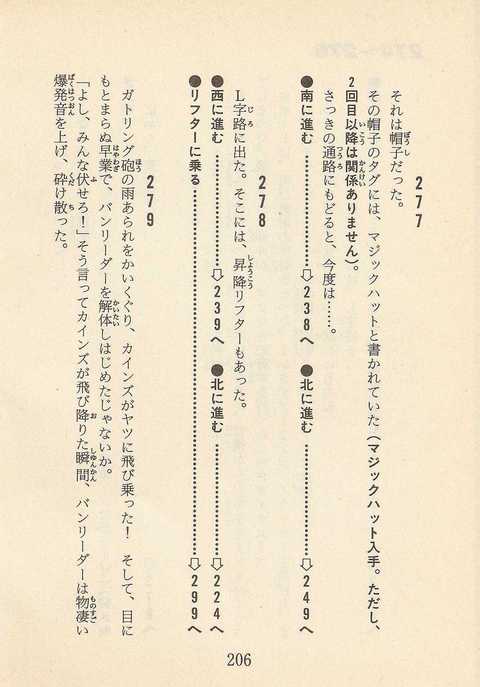 277
それは帽子だった。
その帽子のタグには、マジックハットと書かれていた(マジックハット入手。ただし、
2回目以降は関係ありません)。
さっきの通路にもどると、今度は……。
●南に進む…………⇨238へ ●北に進む…………⇨249へ
278
L字路に出た。そこには、昇降リフターもあった。
●西に進む…………⇨239へ ●北に進む…………⇨224へ
●リフターに乗る…………⇨299へ
279
ガトリング砲の雨あられをかいくぐり、カインズがヤツに飛び乗った! そして、目に
もとまらぬ早業で、バンリーダーを解体しはじめたじゃないか。
「よし、みんな伏せろ!」そう言ってカインズが飛び降りた瞬間、バンリーダーは物凄い
爆発音を上げ、砕け散った。
206